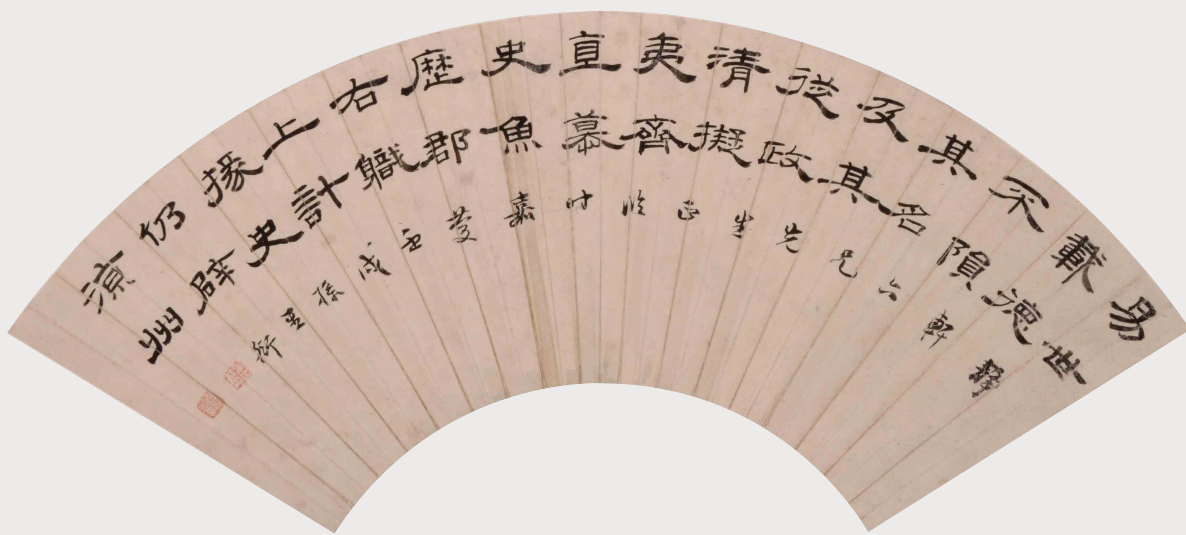 易世
載德
不隕
其名
及其
從政
清擬
夷齊
直慕
史魚
歷郡
右職
上計
掾史
仍辟
涼州
軒六兄先生正臨時嘉慶壬戌孫星衍